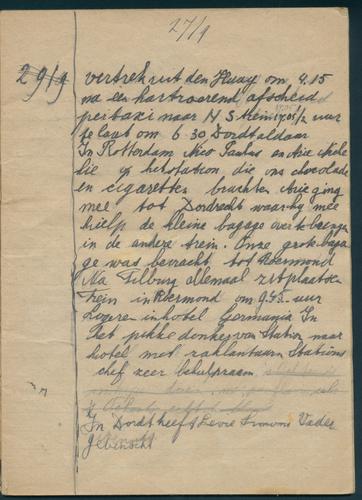 27/9
29/9
vertrek uit den Haag om 4.15
na een hartroerend afscheid
per taxi naar N S trein 1/2 uur
te laat om 6.30 Dordt aldaar
In Rotterdam Nico Paulus en Arie
die op het station, die ons chocolade
en cigaretten brachten Arie ging
mee tot Dordrecht waar hij mee
hielp de kleine bagage over te brengen
in de andere trein. Onze groote baga
ge was bevracht tot Roermond
Na Tilburg allemaal zitplaatsen
trein in Roermond om 9 uur
in hotel Germania In
het pikke donker van Station naar
hotel met zaklantaarn Stations
chef zeer behulpzaam
In Dordt heeft Vader